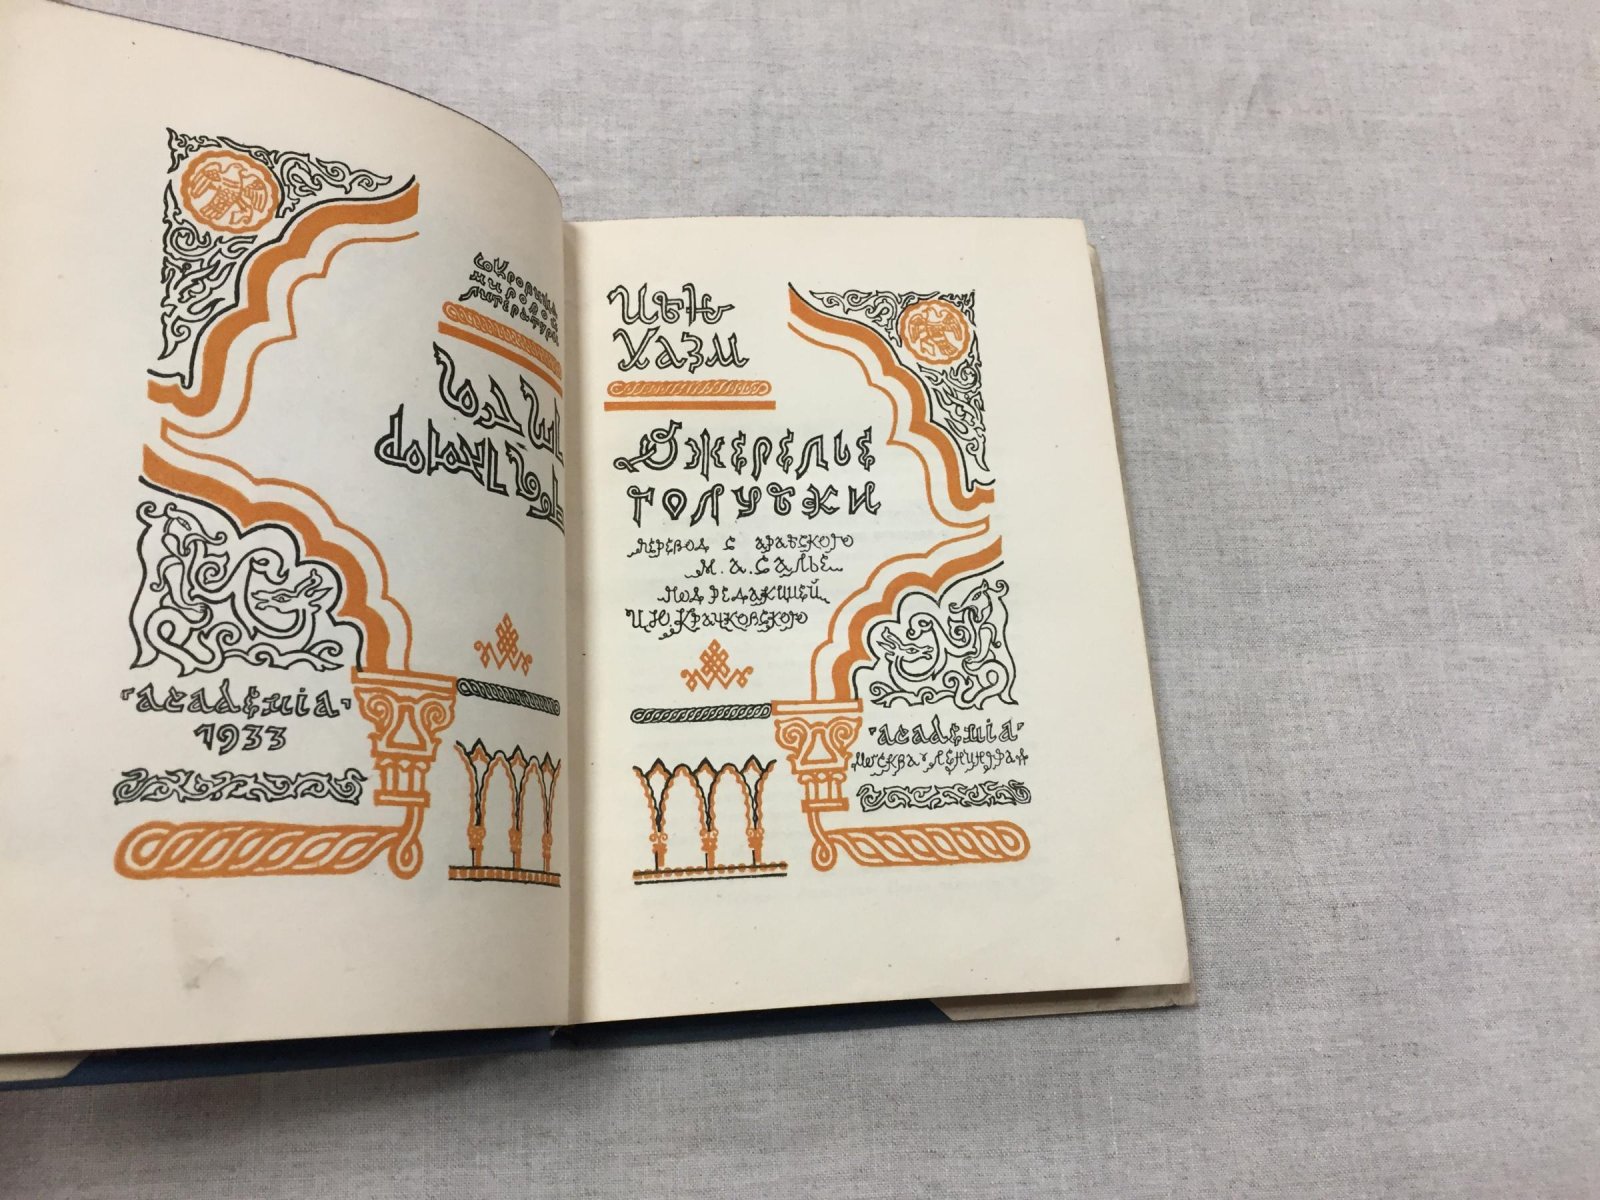 сокровища
мировой
литературы
ابن حزم
طوق الحمامة
"academia"
1933
Ибн
Хазм
Ожерелье
голубки
перевод с арабского
М. А. Салье
под редакцией
И. Ю. Крачковского
"academia"
Москва Ленинград